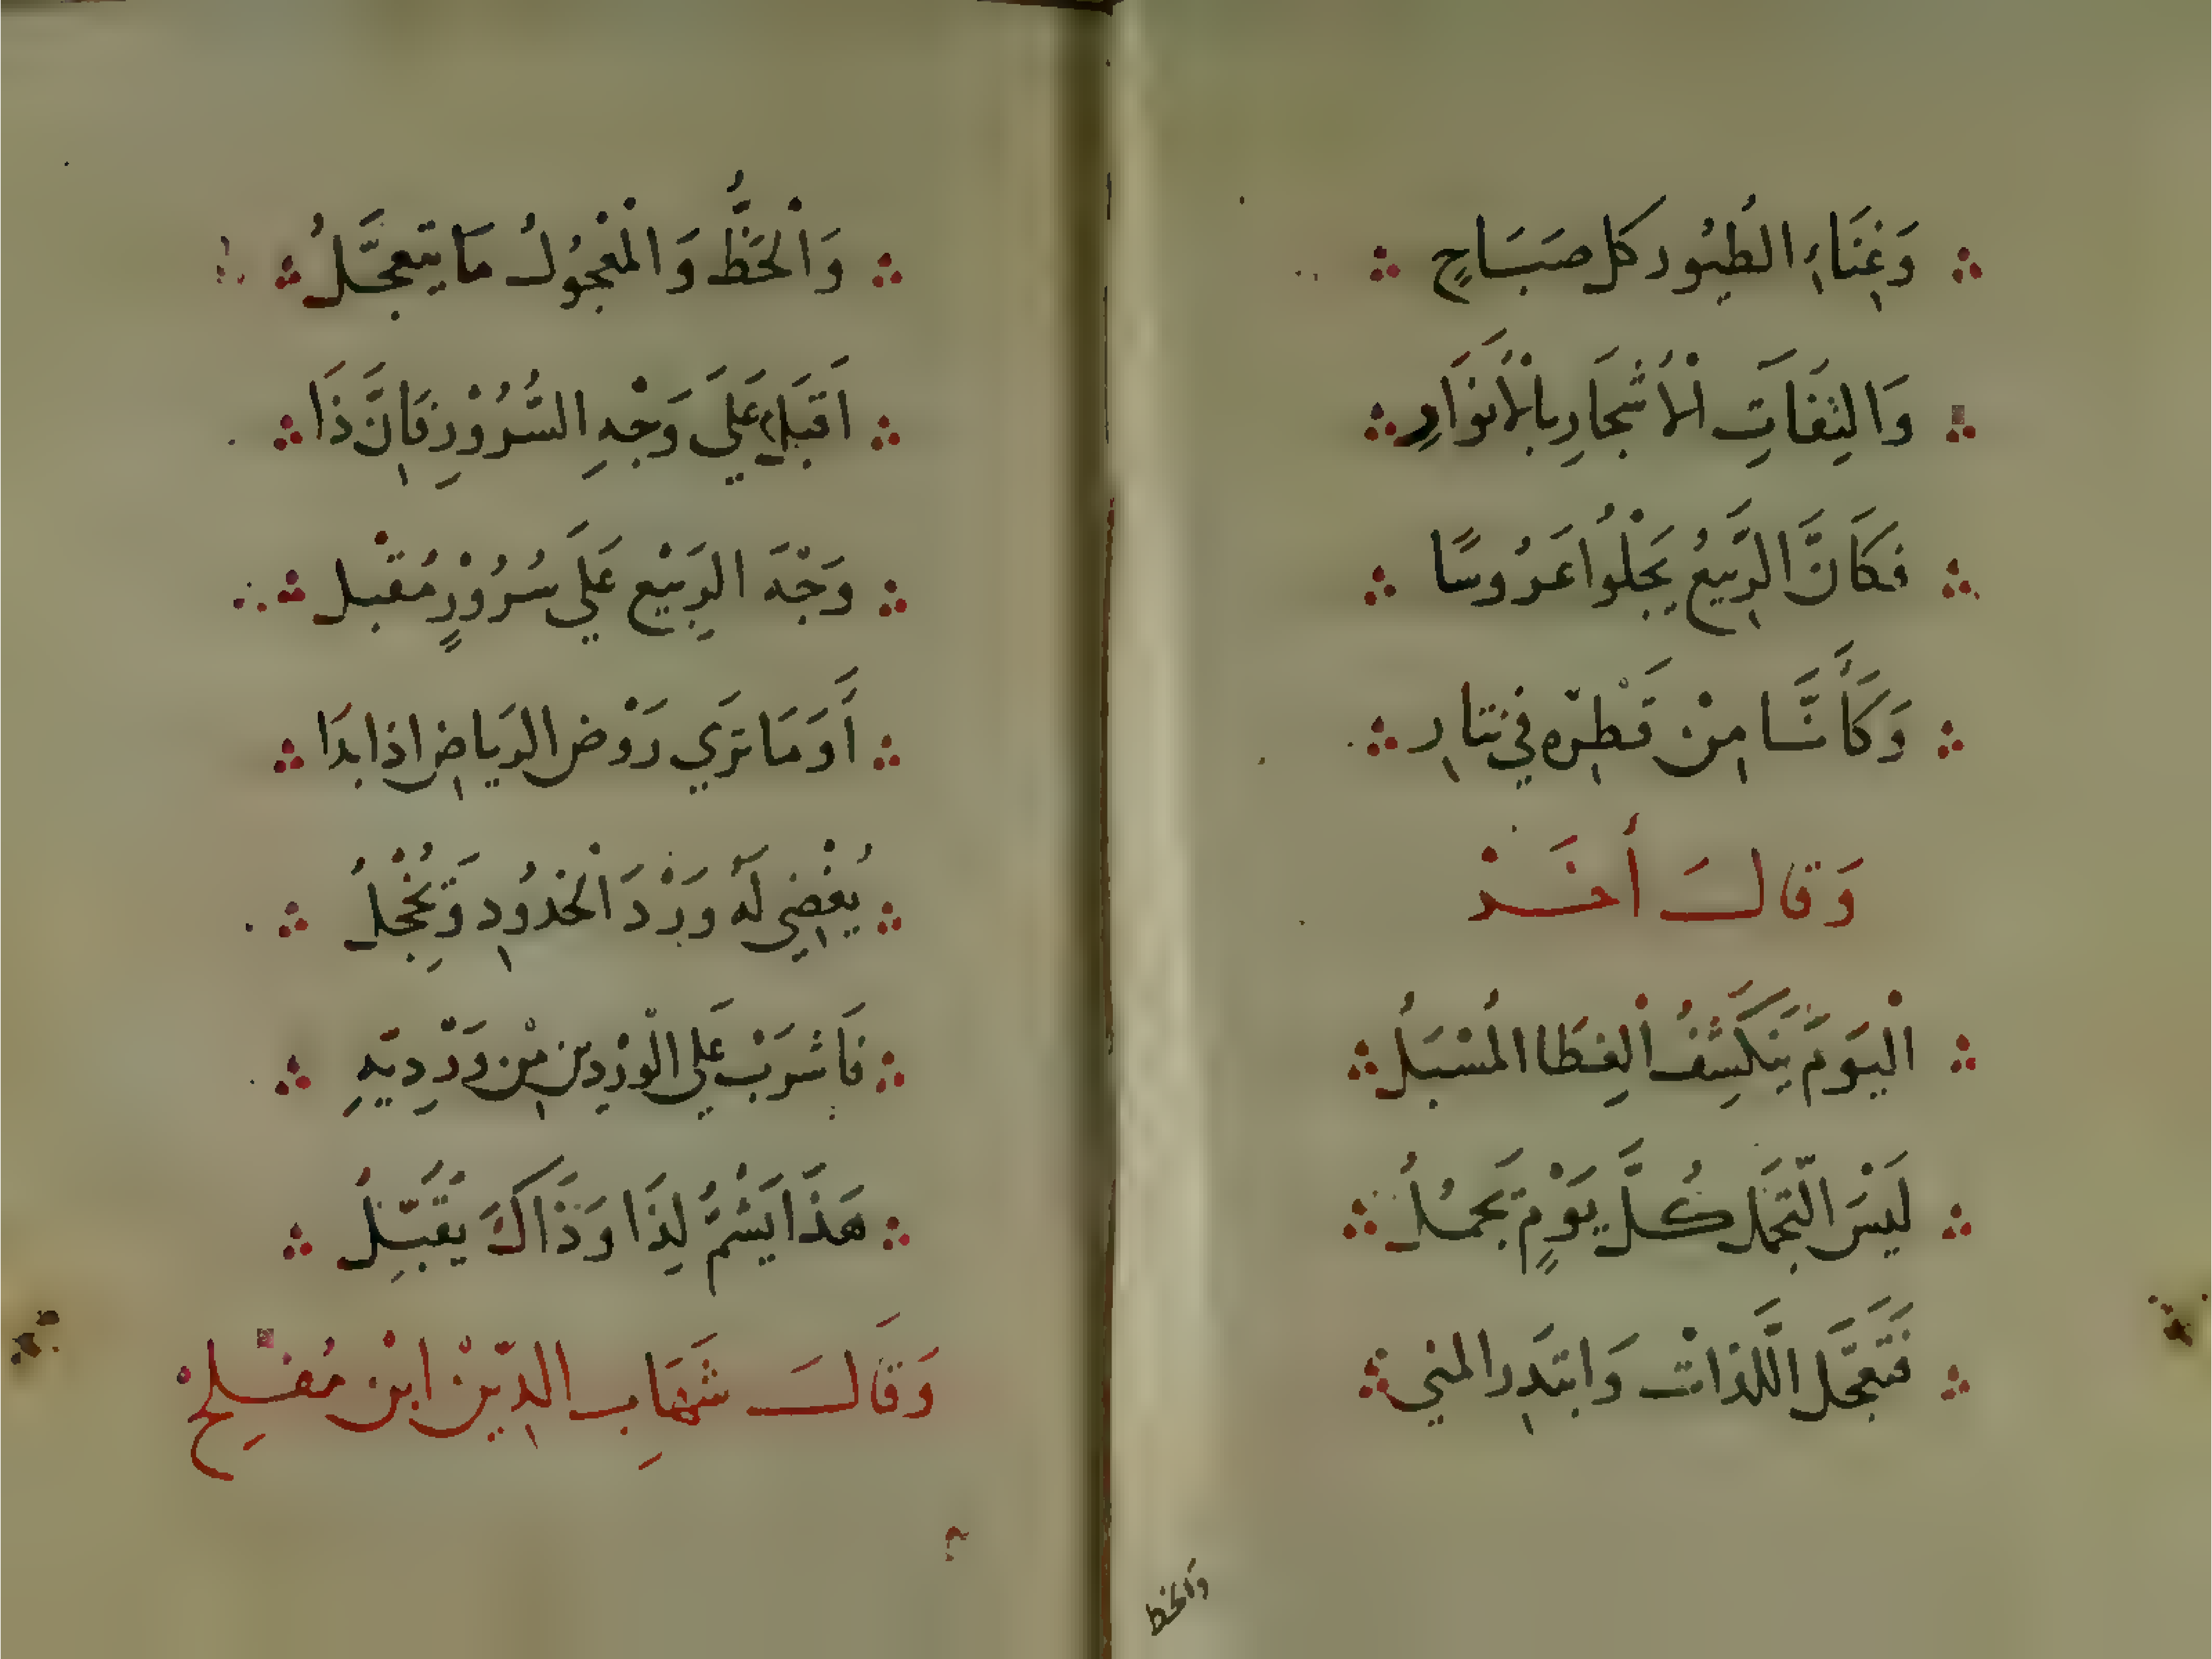 وَغِنَاءِ الطُيُور كل صَبَاحٍ
وَالتِفَاتِ الْأَشْجَارِ بِالْأَنوَارِ
فَكَانَّ الرَّبِيعُ يَجْلُوا عَرُوسًا
وَكَأَنَّا مِنْ قَطْرِه فِي نثارِ
وَقالَ أخَرْ
الْيَوَمَ يَنكَشِفُ الْغِطَا المُسْبَلُ
لَيْسَ التّجَمّل كُلَّ يَوْمٍ يَجمُلُ
فَتَعَجَّل اللَّذاتْ وَابتَدِر المني
وَالحظ
وَالْحَظُّ وَالْمَعْجُولُ مَا يَتعجَّلُ
اَقبَلْ عَلَيَ وَجْهِ السُّرُوْرِ فَاِنَّ ذَا
وَجْهَ الرَبِيْعِ عَلَيَ سُرُوْرٍ مُقْبل
أَوَمَا تَرَي رَوْض الرِيَاضِ اذا بدَا
يُغْضِي لَهُ وَرْدَ الْخدُودِ وَيَخْجلُ
فَاشرَبْ عَلَى الْوَرْدين مِنْ وَرْدِيَّهِ
هَذَا يَشُمُّ لِذَا وَذَاكَ يقَبِّلُ
وَقَالَ شَهَابِ الدِّيْنْ ابْن مُفْلِح